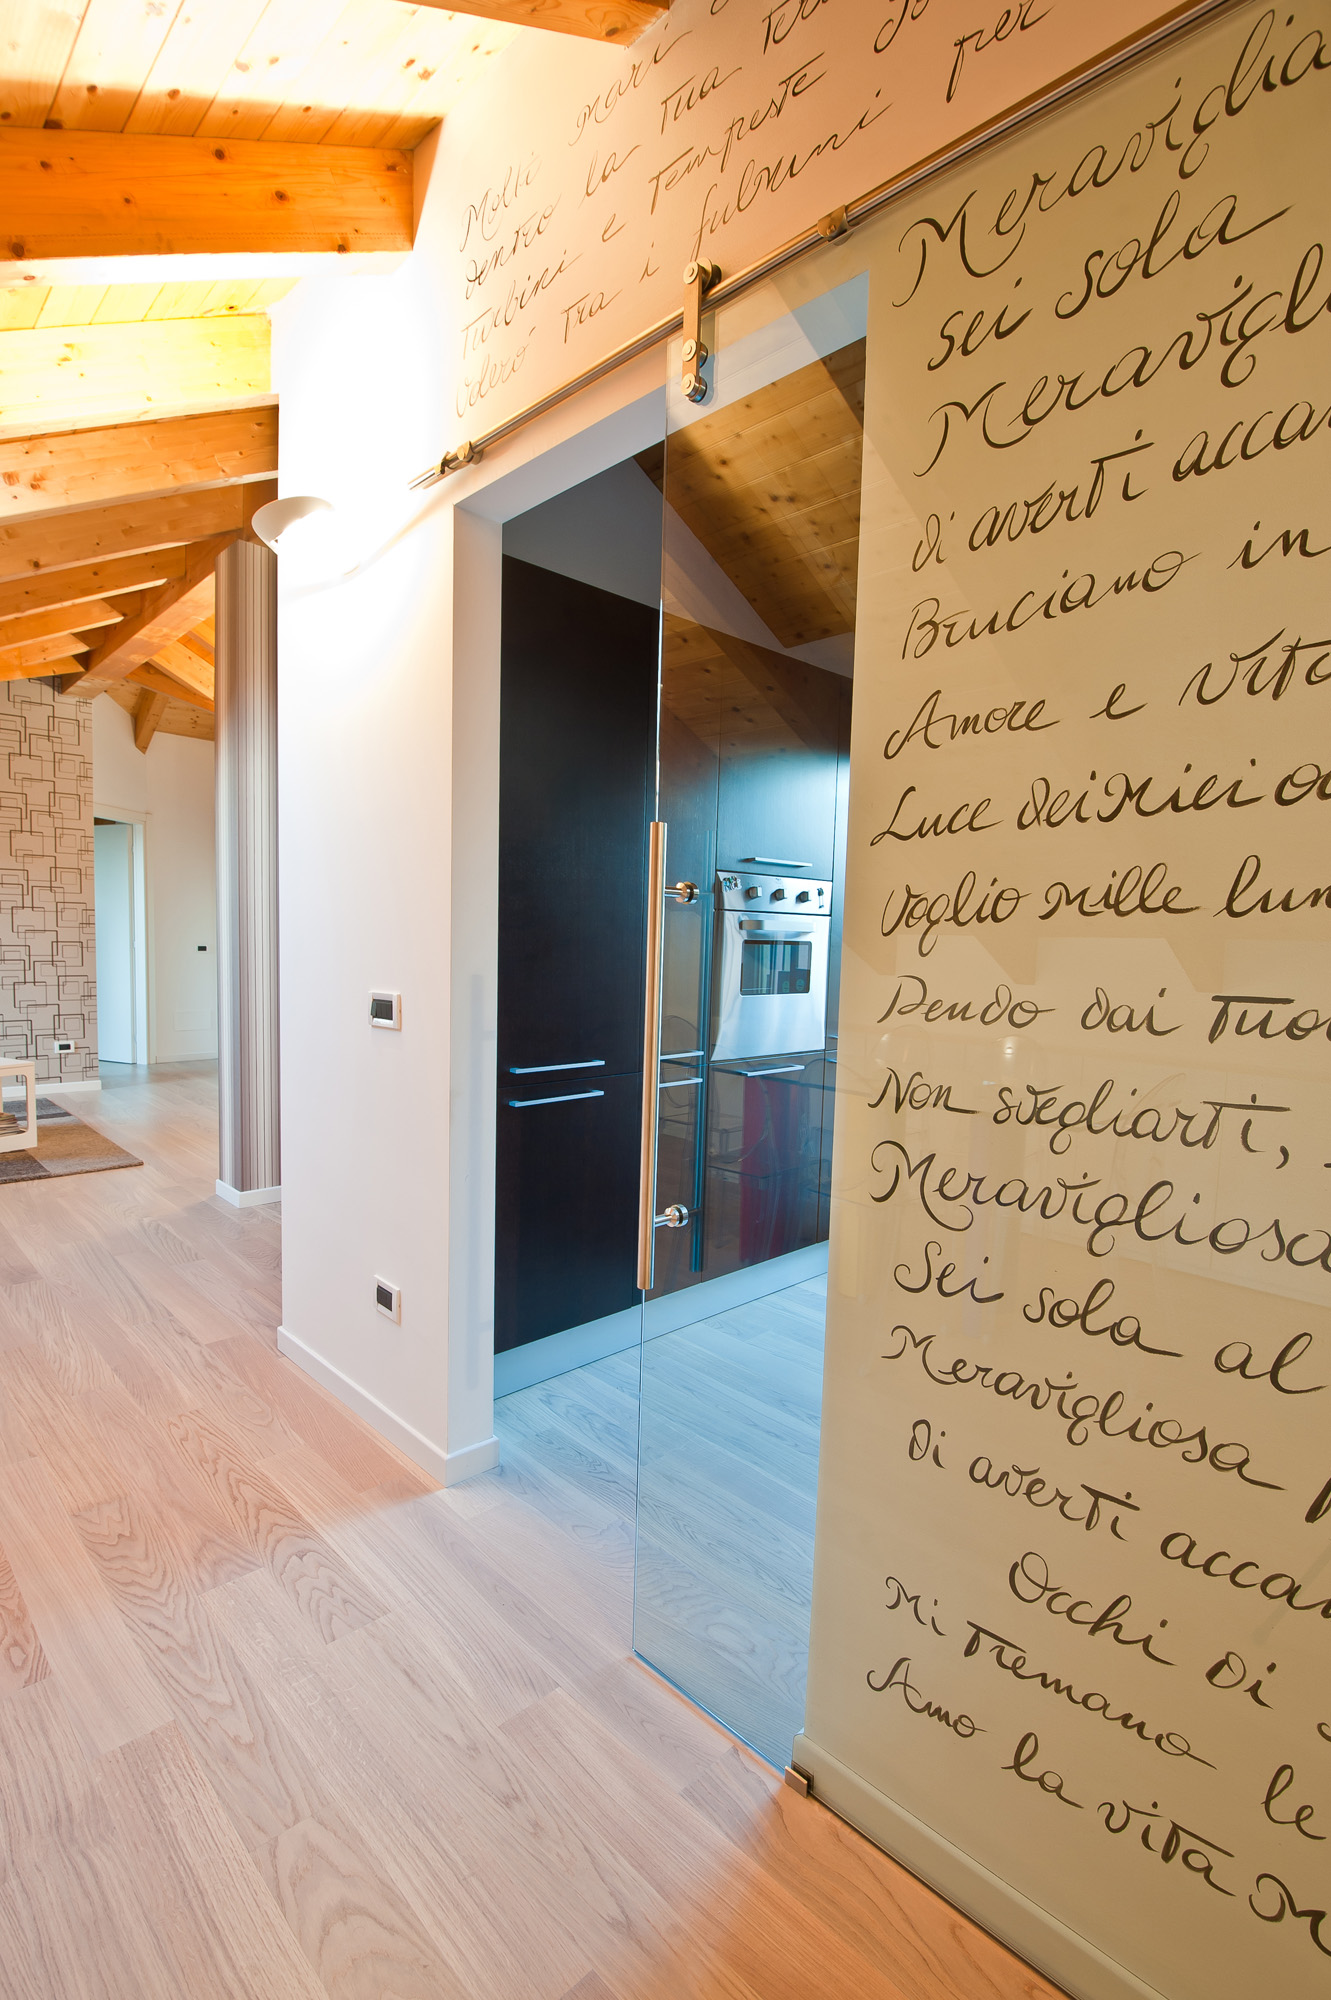 Molti mari
dentro la tua
Turbini e tempeste
Volerò tra i fulmini per
Meraviglia
sei sola
Meravigli
di averti acca
Bruciano in
Amore e vita
Luce dei Miei oc
Voglio mille lun
Pendo dai tuoi
Non svegliarti,
Meravigliosa
Sei sola al
Meravigliosa p
Di averti accan
Occhi di
Mi tremano le
Amo la vita M